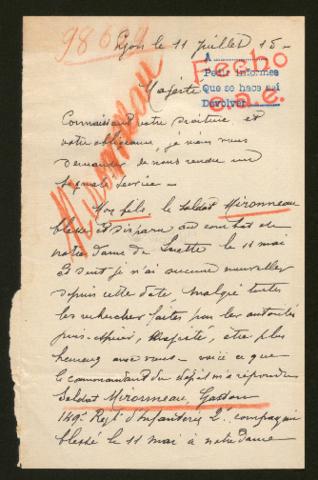 Lyon le 11 juillet 15 -
A
Pedir informes
Que se hace así
Devolver
Fecho
Majesté
Mironneau
Connaissant votre droiture et
votre obligeance, je viens vous
demander de nous rendre un
service -
Mon fils, le soldat Mironneau
blessé et disparu au combat de
notre Dame de Lorette le 11 mai
et dont je n'ai aucune nouvelles
depuis cette date, malgré toutes
les recherches faites par les autorités
puis-je, Majesté, être plus
heureux avec vous - voici ce que
le commandant du dépôt m'a répondu
Soldat Mironneau, Gaston
149e Regt d'Infanterie 2e compagnie
blessé le 11 mai à notre Dame